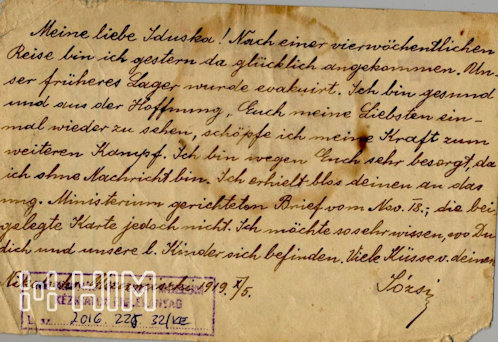 Meine liebe Iduska! Nach einer vierwöchentlichen
Reise bin ich gestern da glücklich angekommen. Un-
ser früheres Lager wurde evakuirt. Ich bin gesund
und aus der Hoffnung, Euch meine Liebsten ein-
mal wieder zu sehen, schöpfe ich meine Kraft zum
weiteren Kampf. Ich bin wegen Euch sehr besorgt, da
ich ohne Nachricht bin. Ich erhielt blos deinen an das
ung. Ministerium gerichteten Brief vom Nov. 18.; die bei
gelegte Karte jedoch nicht. Ich möchte so sehr wissen, wo Du
dich und unsere l. Kinder sich befinden. Viele Küsse v. deinem
1919 X/5. Józsi
HIM
2016 225 32/KE